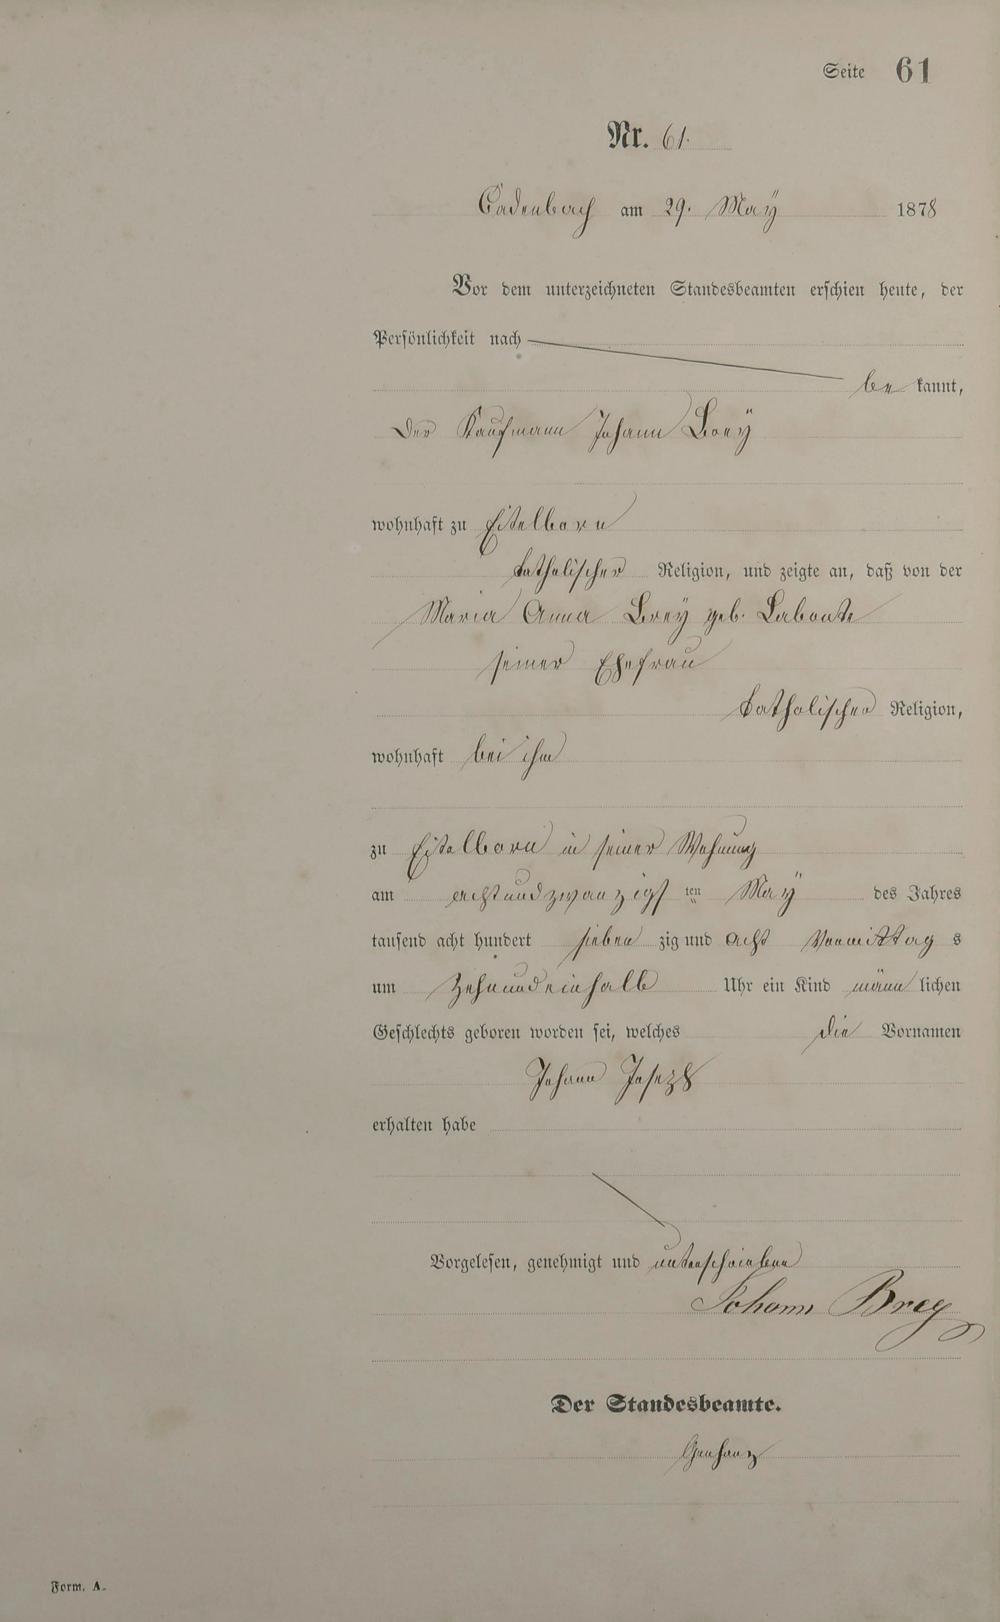 Seite 61
Nr. 61.
Cadenbach am 29. Maÿ 1878
Vor dem unterzeichneten Standesbeamten erschien heute, der
Persönlichkeit nach
be kannt,
der Kaufmann Johann Breÿ
wohnhaft zu Eitelborn
katholischer Religion, und zeigte an, daß von der
Maria Anna Breÿ geb. Labonte
seiner Ehefrau
katholischer Religion,
wohnhaft bei ihm
zu Eitelborn in seiner Wohnung
am achtundzwanzigs ten Maÿ des Jahres
tausend acht hundert sieben zig und acht Vormittag s
um Zehnundeinhalb Uhr ein Kind männ lichen
Geschlechts geboren worden sei, welches die Vornamen
Johann Joseph
erhalten habe
Vorgelesen, genehmigt und unterschrieben
Johann Brey
Der Standesbeamte.
Form. A.